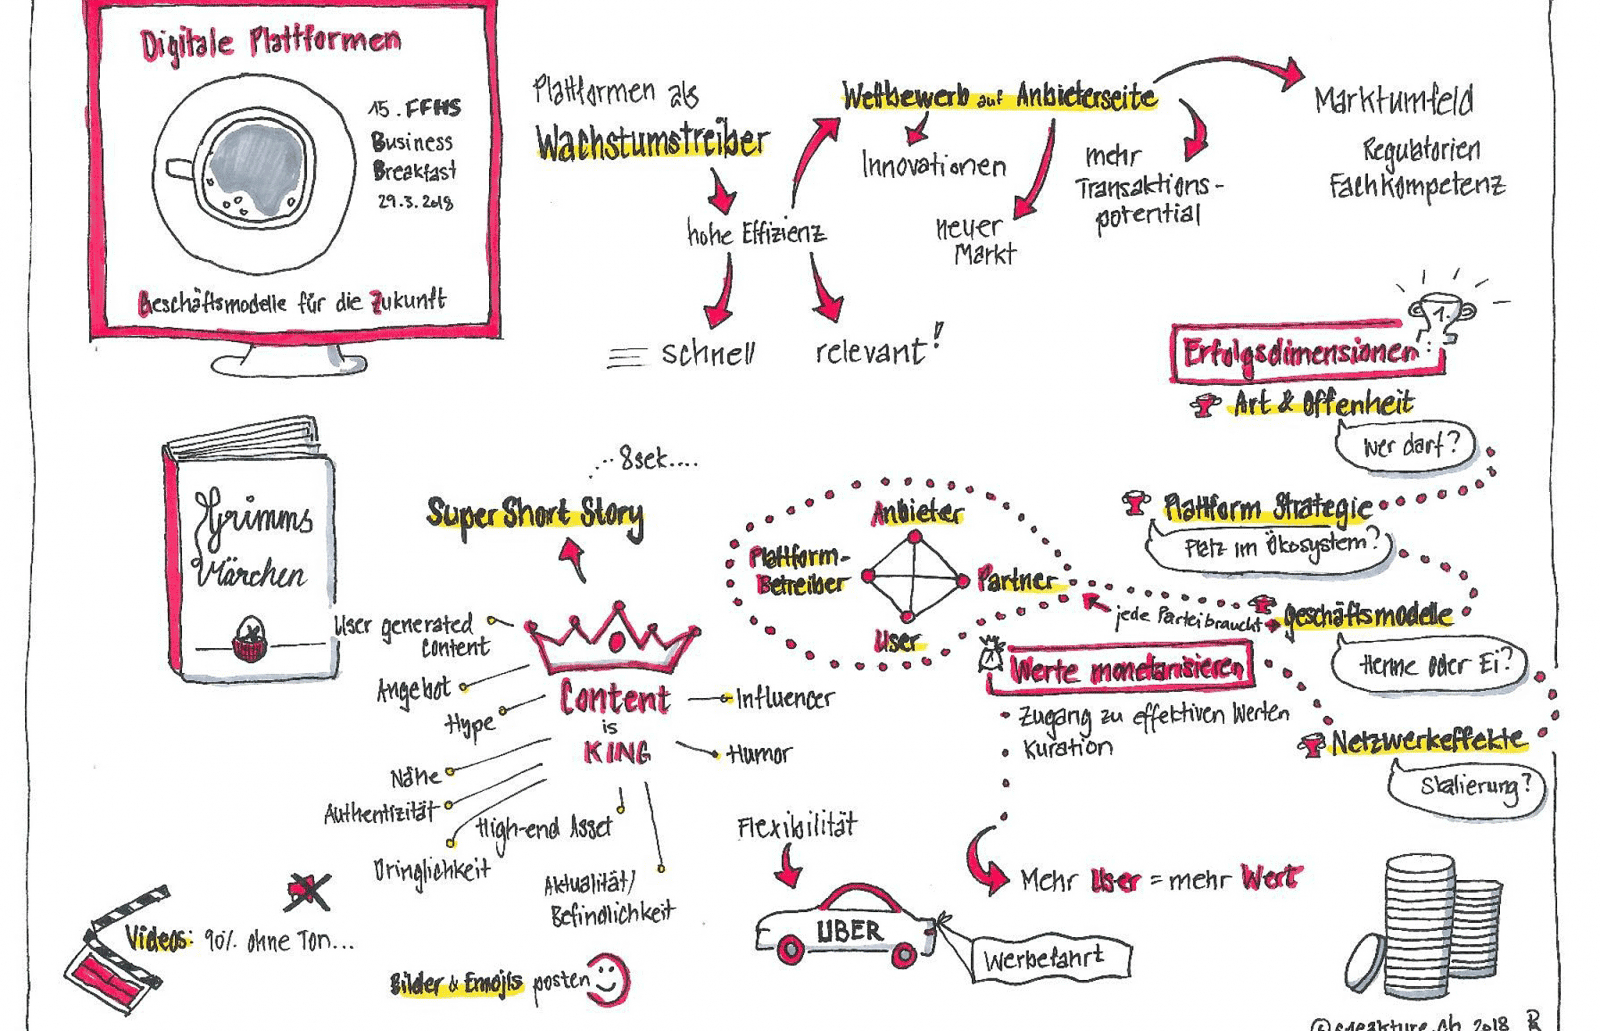 Digitale Plattformen
15. FFHS
Business
Breakfast
29.3.2018
Geschäftsmodelle für die Zukunft
Plattformen als
Wachstumstreiber
hohe Effizienz
schnell
relevant!
Wettbewerb auf Anbieterseite
Innovationen
neuer
Markt
mehr
Transaktions-
potential
Marktumfeld
Regulatorien
Fachkompetenz
1.
Erfolgsdimensionen:
Art & Offenheit
Wer darf?
Plattform Strategie
Platz im Ökosystem?
Geschäftsmodelle
Henne oder Ei?
Netzwerkeffekte
Skalierung?
Grimms
Märchen
...8sek....
Super Short Story
User generated
Content
Angebot
Hype
Nähe
Authentizität
Dringlichkeit
High-end Asset
Aktualität/
Befindlichkeit
Content
is
KING
Influencer
Humor
Anbieter
Plattform-
Betreiber
Partner
User
jede Partei braucht
Werte monetarisieren
Zugang zu effektiven Werten
Kuration
Mehr User = mehr Wert
Flexibilität
UBER
Werbefahrt
Videos: 90% ohne Ton...
Bilder & Emojis posten
2018